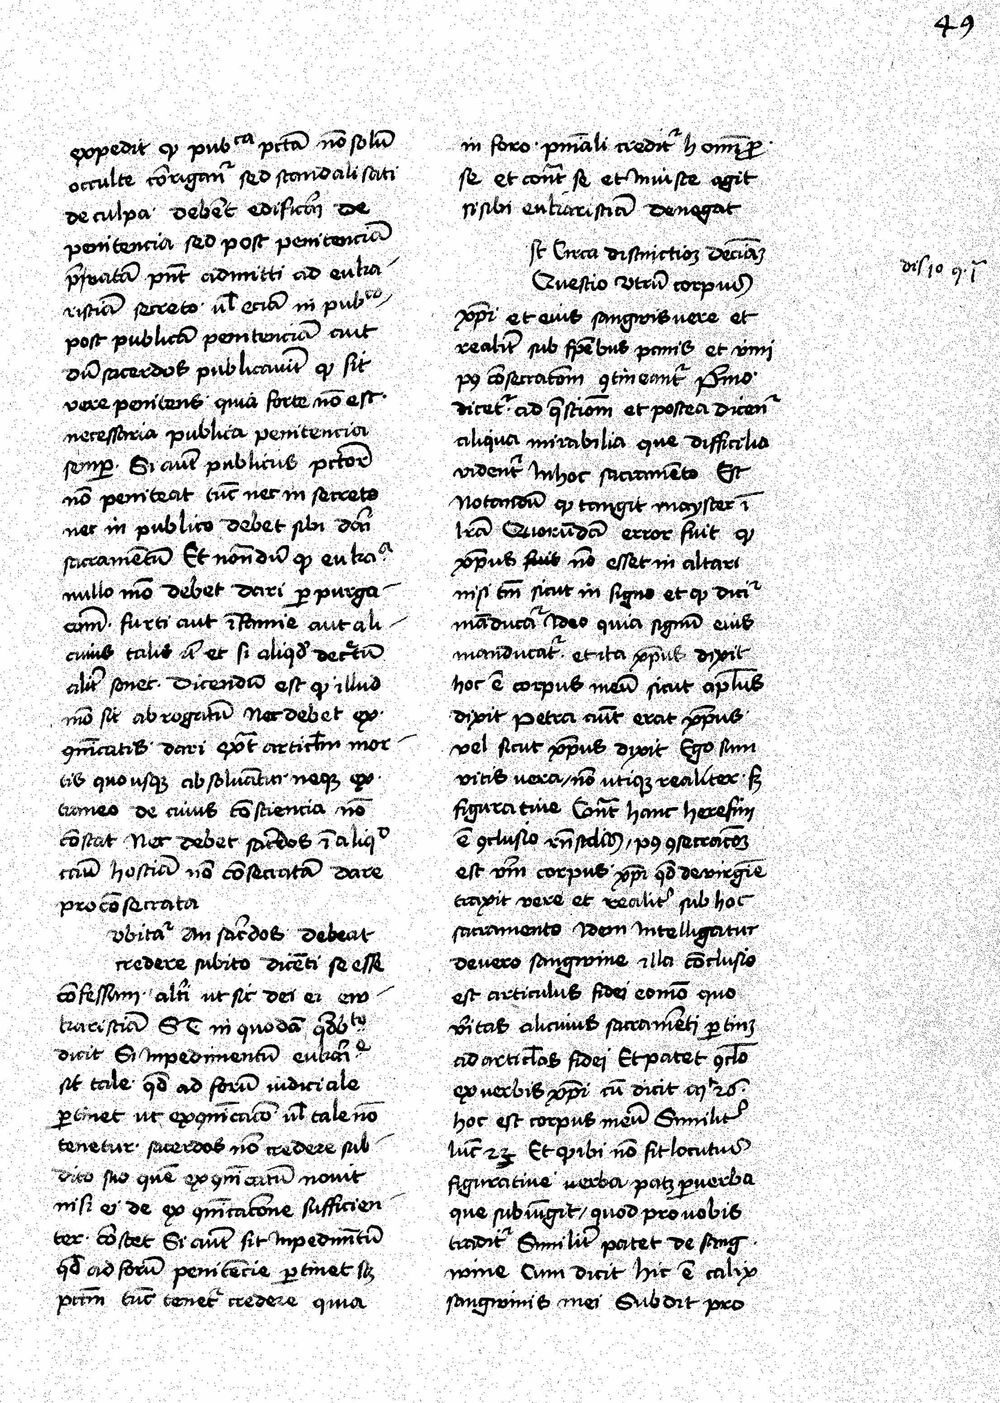 49
expedit ꝙ pubca pctā nō solū
occulte corrigant sed scandalisati
de culpa debēt edificari de
penitencia sed post penitenciā
p̄fatam pn̄t admitti ad euka
ristiā secreto ul eciā in pubco
post publicā penitenciā aut
dū sacerdos publicauit ꝙ sit
vere penitens quia forte nō est
necessaria publica penitencia
semꝑ Si aut publicus pctor
nō peniteat tūc nec in secreto
nec in publico debet sibi dari
sacramētū Et notandū ꝙ euka
nullo mō debet dari ꝑ purga
com furti aut īfamie aut ali
cuius talis et si aliqd decretū
alit sonet Dicendū est ꝙ illud
mō sit abrogatū Nec debet ex
9icatis dari ext articlm mor
tis quo usqꝫ absoluātur neqꝫ ex
traneo de cuius cōsciencia nō
cōstat Nec debet sacdos ī aliqo
casu hostiā nō cōsecratā dare
pro cōsecrata
vbitat An sacdos debeat
credere subito dicēti se esse
cōfessum alti ut sic det ei eu
karistiā in quodā qdlbto
dicit Si impedimentū euka
sit tale qd ad forū iudiciale
ꝑtinet ut ex9icaco ul tale nō
tenetur sacerdos nō credere sub
dito suo quē ex9icatū nouit
nisi ei de ex9icacone sufficien
ter cōstet Si aut sit impedimtū
qd ad forū penitēcie ꝑtinet sꝫ
pctm tūc tenet credere quia
in foro pniali credit homi ꝓ
se et cont se et iniuste agit
si sibi eukaristiā denegat
Circa distinctioꝫ deciaꝫ
Questio vtrū corpus
xpi et eius sangwis vere et
realit sub spēbus panis et vini
p9 cōsecratom 9tineant Primo
dicet ad qstiom et postea dicen
aliqua mirabilia que difficilia
vident in hoc sacramēto Est
Notandū ꝙ tangit mayster ī
lra Quorūdā error fuit ꝙ
xpus nō esset in altari
nisi tm sicut in signo et ꝙ dicit
māducat ideo quia signū eius
manducat et ita xpus dixit
hoc ē corpus meū sicut aplus
dixit petra aut erat xpus
vel sicut xpus dixit Ego sum
vitis vera nō utiqꝫ realiter sꝫ
figuratiue Cont hanc heresim
ē 9clusio p9 9secracōꝫ
est vm corpus xpi qd de virgīe
traxit vere et realit sub hoc
sacramento Idem intelligatur
de vero sangwine illa cōclusio
est articulus fidei eomō quo
vitas alicuius sacramēti ꝑtinꝫ
ad articlos fidei Et patet 9clo
ex verbis xpi cū dicit mt 26
hoc est corpus meū Similit
luc 22 Et ꝙ ibi nō sit locutus
figuratiue verba patꝫ ꝑ verba
que subiūgit quod pro vobis
tradit Similit patet de sang
wine Cum dicit hic ē calix
sangwinis mei Subdit pro
dis 10 q ī